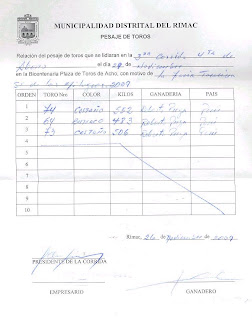 MUNICIPALIDAD DISTRITAL DEL RIMAC
PESAJE DE TOROS
Relación del pesaje de toros que se lidiaran en la 3ra Corrida 4 Ta
el dia 29 de Noviembre
en la Bicentenaria Plaza de Toros de Acho, con motivo de la feria
2009
ORDEN TORO Nro COLOR KILOS GANADERIA PAIS
1 74 CASTAÑO 502 Roberto Puga Peru
2 64 483 Roberto Puga Peru
3 73 CASTAÑO 506 Roberto Puga Peru
4
5
6
7
8
9
10
Rimac, 26 Noviembre 2009
PRESIDENTE DE LA CORRIDA
EMPRESARIO GANADERO